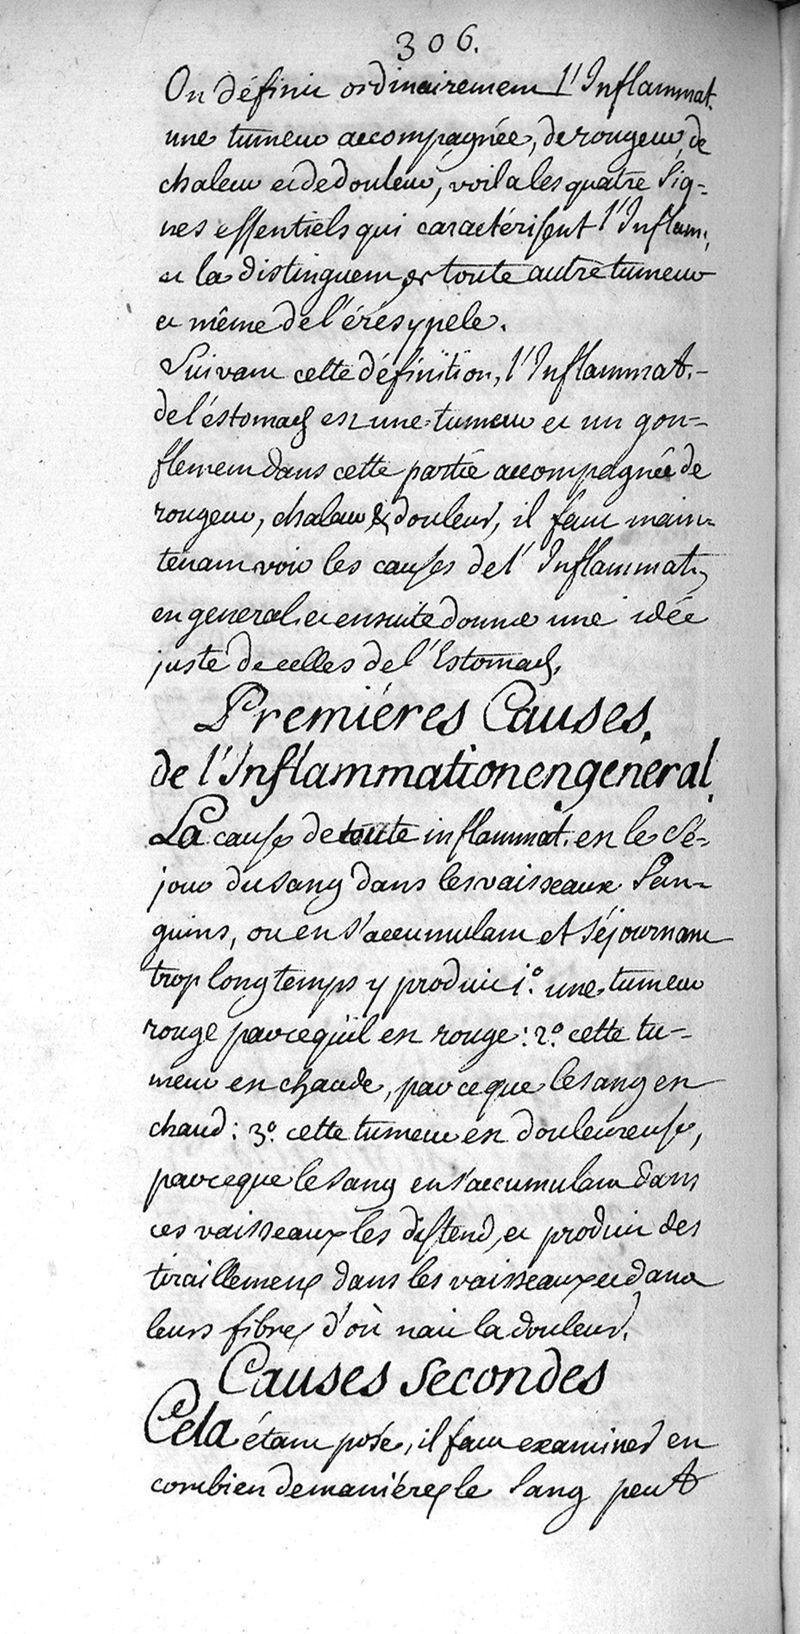 306.
On définit ordinairement l'Inflammat.
une tumeur accompagnée, de rougeur, de
chaleur et de douleur, voila les quatre Sig=
nes essentiels qui caractérisent l'Inflam.
et la distinguent de toute autre tumeur
et même de l'éresypele.
Suivant cette définition, l'Inflammat.-
de l'éstomach est une tumeur et un gon=
flement dans cette partie accompagnée de
rougeur, chaleur & douleur, il faut main=
tenant voir les causes de l'Inflammat.
en general, et ensuite donner une idée
juste de celles de l'Estomach,
Premiéres Causes.
de l'Inflammation en general.
La cause de toute inflammat. est le Sé=
jour du sang dans les vaisseaux San=
guins, ou en s'accumulant et séjournant
trop longtemps y produit 1.° une tumeur
rouge parcequ'il est rouge: 2.° cette tu=
meur est chaude, parceque le sang est
chaud: 3.° cette tumeur est douleureuse,
parceque le sang en s'accumulant dans
ces vaisseaux les distend, et produit des
tiraillemens dans les vaisseaux et dans
leurs fibres d'où nait la douleur.
Causes Secondes
Cela étant posé, il faut examiner en
combien de maniéres le Sang peut